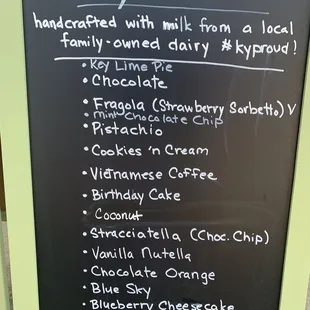 handcrafted with milk from a local
family-owned dairy #kyproud!
• Key Lime Pie
• Chocolate
• Fragola (Strawberry Sorbetto) V
• Mint Chocolate Chip
• Pistachio
• Cookies 'n Cream
• Vietnamese Coffee
• Birthday Cake
• Coconut
• Stracciatella (Choc. Chip)
• Vanilla Nutella
• Chocolate Orange
• Blue Sky
• Blueberry Cheesecake